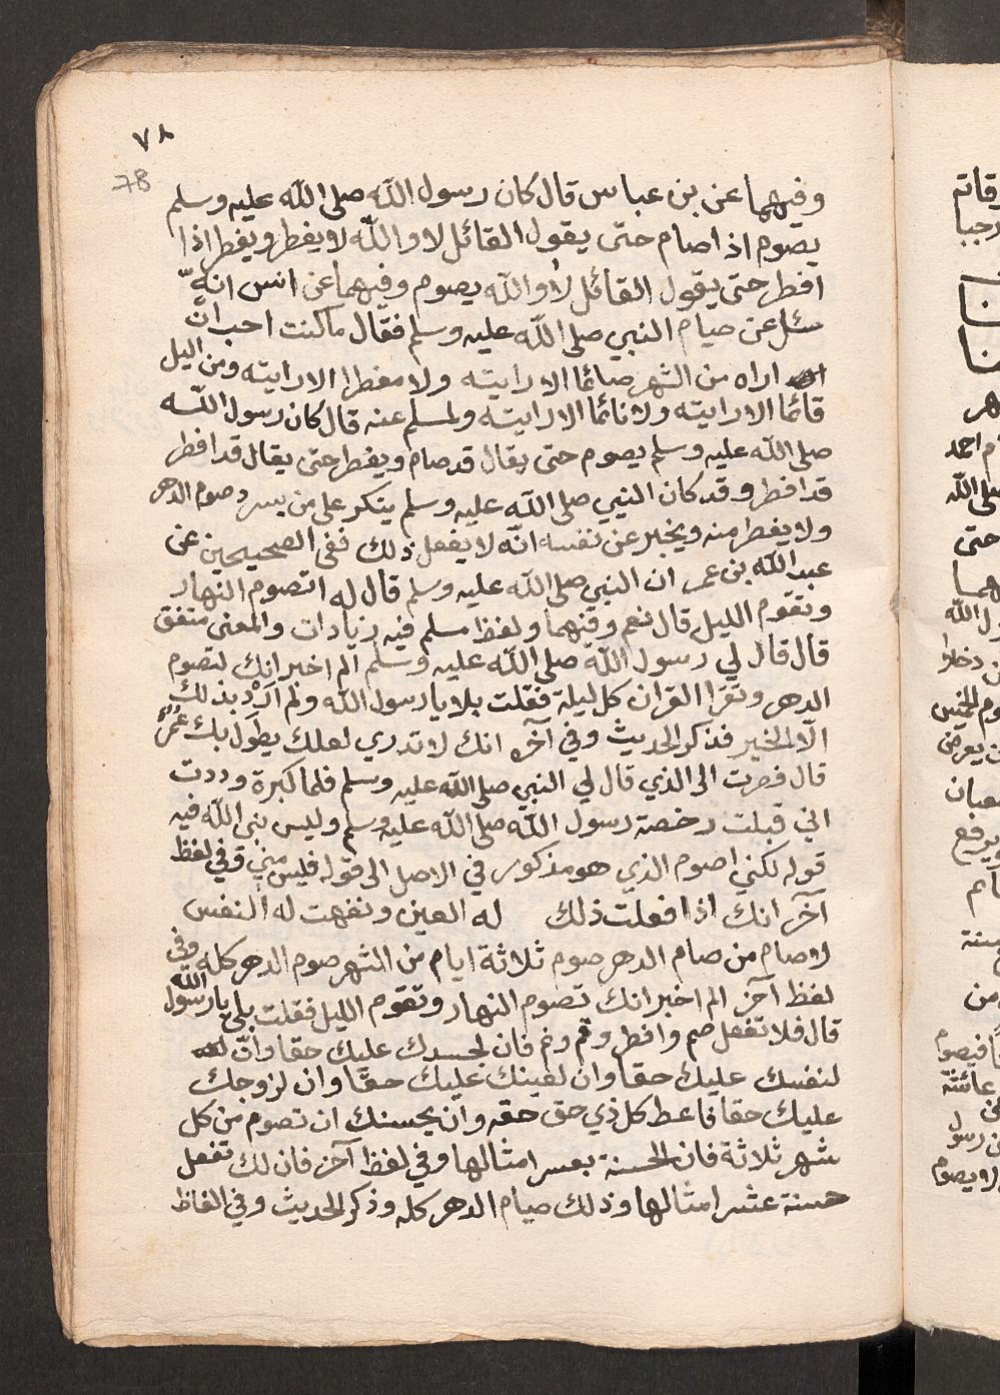 ٧٨
78
وفيهما عن بن عباس قال كان رسول الله صلى الله عليه وسلم
يصوم اذا صام حتى يقول القائل لا والله لا يفطر ويفطر اذا
افطر حتى يقول القائل لا والله يصوم وفيهما عن انس انه
سئل عن صيام النبي صلى الله عليه وسلم فقال ما كنت احب ان
اراه من الشهر صائما الا رايته ولا مفطرا الا رايته ومن اليل
قائما الا رايته ولا نائما الا رايته ولمسلم عنه قال كان رسول الله
صلى الله عليه وسلم يصوم حتى يقال قد صام ويفطر حتى يقال قد افطر
قد افطر وقد كان النبي صلى الله عليه وسلم ينكر على من يسرد صوم الدهر
ولا يفطر منه ويخبر عن نفسه انه لا يفعل ذلك ففى الصحيحين عن
عبد الله بن عمر ان النبي صلى الله عليه وسلم قال له اتصوم النهار
وتقوم الليل قال نعم وفيهما ولفظ مسلم فيه زيادات والمعنى متفق
قال قال لي رسول الله صلى الله عليه وسلم الم اخبر انك لتصوم
الدهر وتقرا القران كل ليلة فقلت بلا يا رسول الله ولم ارد بذلك
الا الخير فذكر الحديث وفي آخره انك لا تدري لعلك يطول بك عمر
قال فصرت الى الذي قال لي النبي صلى الله عليه وسلم فلما كبرة وددت
اني قبلت رخصة رسول الله صلى الله عليه وسلم وليس نبى الله فيه
قوله لكني اصوم الذي هو مذكور في الاصل الى قوله فليس مني وفي لفظ
آخر انك اذا فعلت ذلك له العين ونفهت له النفس
لا صام من صام الدهر صوم ثلاثة ايام من الشهر صوم الدهر كله وفي
لفظ آخر الم اخبر انك تصوم النهار وتقوم الليل فقلت بلى يا رسول الله
قال فلا تفعل صم وافطر وقم ونم فان لجسدك عليك حقا وان
لنفسك عليك حقا وان لعينك عليك حقا وان لزوجك
عليك حقا فاعط كل ذي حق حقه وان بحسبك ان تصوم من كل
شهر ثلاثة فان الحسنة بعسر امثالها وفي لفظ آخر فان لك تفعل
حسنة عشر امثالها وذلك صيام الدهر كله وذكر الحديث وفي الفاظ